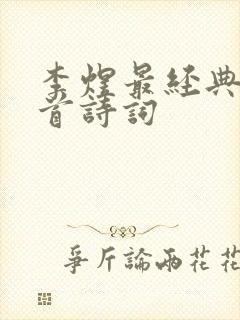 李煜最經典
首詩詞
爭斤論兩花花